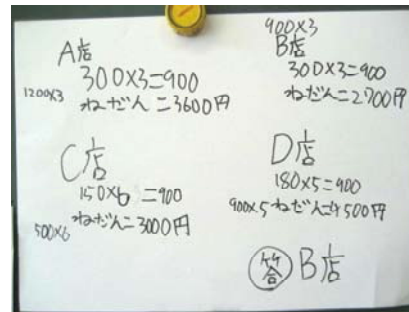 A店
300×3=900
1200×3
ねだん=3600円
900×3
B店
300×3=900
ねだん=2700円
C店
150×6=900
500×6
ねだん=3000円
D店
180×5=900
900×5
ねだん=4500円
答 B店